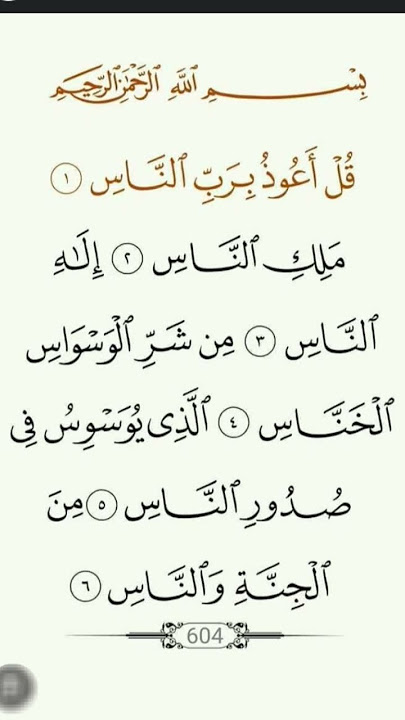 بِسْمِ ٱللَّهِ ٱلرَّحْمَٰنِ ٱلرَّحِيمِ
قُلْ أَعُوذُ بِرَبِّ ٱلنَّاسِ ١
مَلِكِ ٱلنَّاسِ ٢ إِلَٰهِ
ٱلنَّاسِ ٣ مِن شَرِّ ٱلْوَسْوَاسِ
ٱلْخَنَّاسِ ٤ ٱلَّذِى يُوَسْوِسُ فِى
صُدُورِ ٱلنَّاسِ ٥ مِنَ
ٱلْجِنَّةِ وَٱلنَّاسِ ٦
604